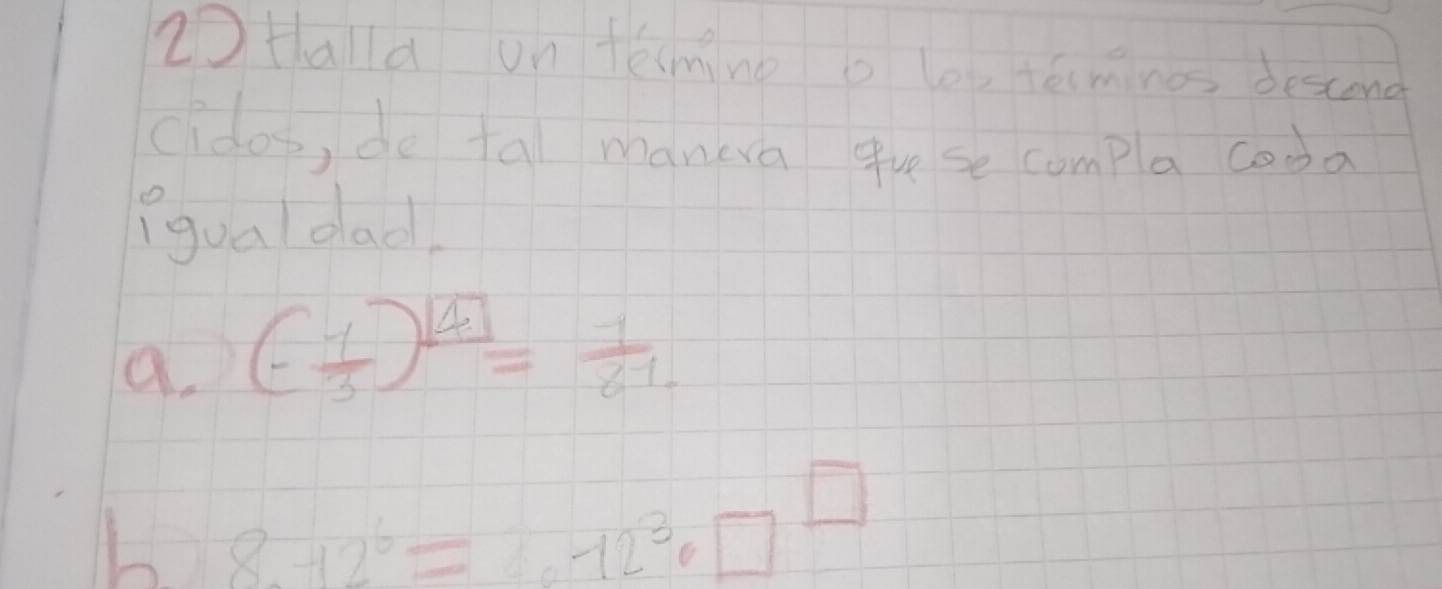 2) Halla un término o los términos descono
cidos, de tal manera que se cumpla coda
igualdad.
a. (-1/3)^4 = 1/81.
b 8.12^6 = .12^3 . □^□